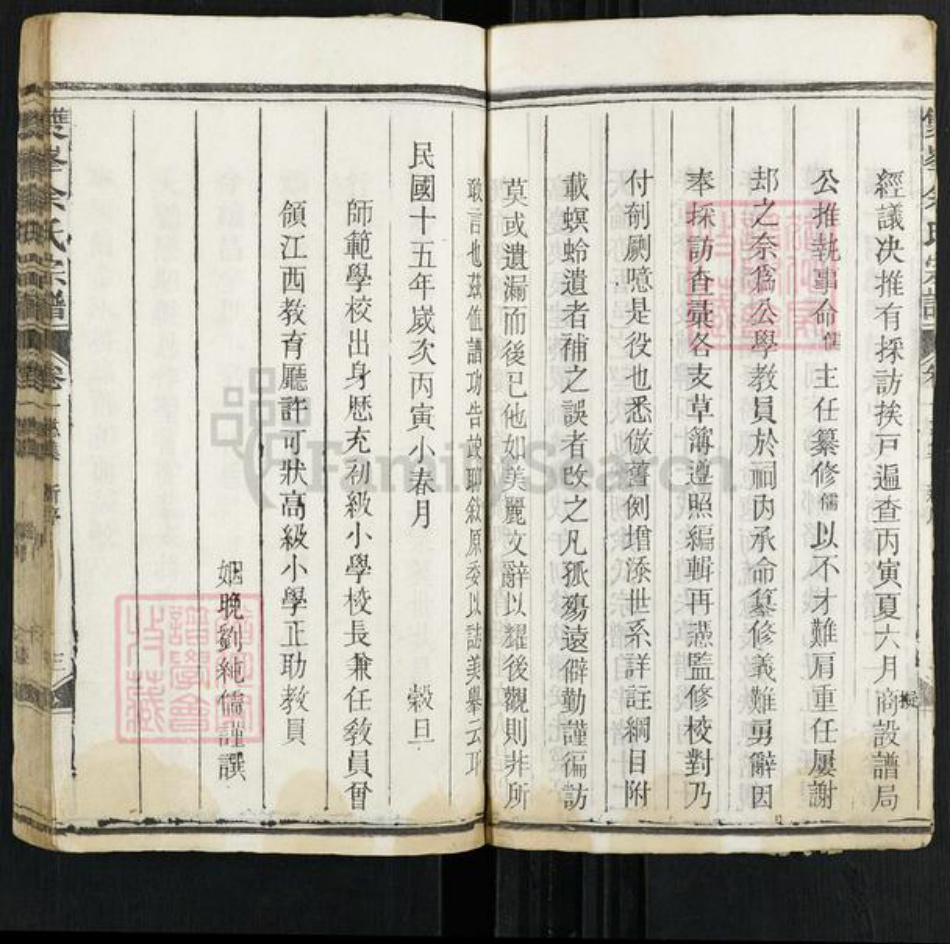 經議决推有採訪挨戸遍查丙寅夏六月商設譜局擬
公推執事命儒主任纂修儒以不才難肩重任屢謝
却之奈爲公學教員於祠内承命纂修義難剪辭因
奉採訪查彙各支草簿遵照編輯再慿監修校對乃
付剞劂噫是役也悉倣舊例增添世系詳註綱目附
載螟蛉遺者補之誤者改之凡孤殤遠僻勤謹徧訪
莫或遺漏而後已他如美麗文辭以耀後觀則非所
敢言也茲值譜功告竣聊敘原委以誌美舉云耳
民國十五年嵗次丙寅小春月 穀旦
師範學校出身歷充初級小學校長兼任教員曾
領江西教育廳許可狀高級小學正助教員
姻晚劉純儒謹譔
雙峯余氏宗譜 卷一 新序 三
雙峯余氏宗譜
FamilySearch